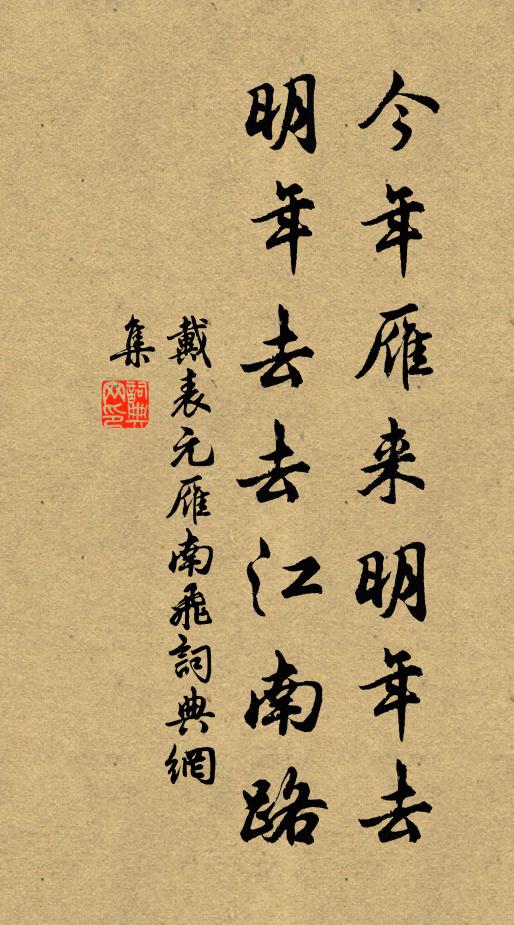 今年雁来明年去
明年去去江南路
戴表元雁南飛詞典網
集
詞典
网印